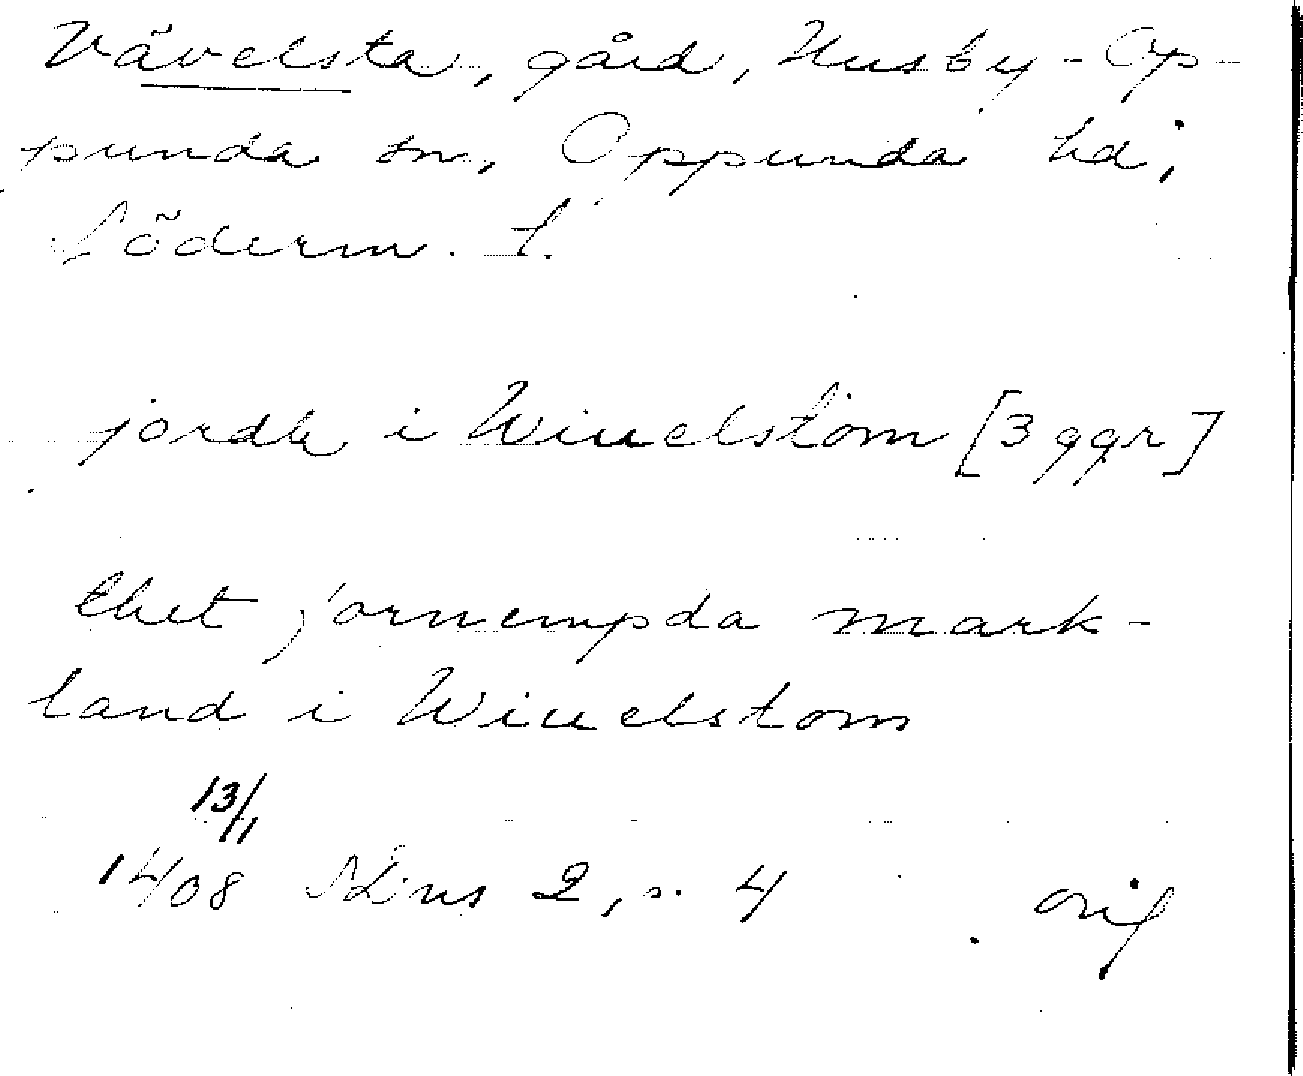 Vävelsta, gård, Husby-Op-
punda sn, Oppunda hd,
Söderm. l.
jordh i Wiuelstom [3 ggr]
thet fornempda mark-
land i Wiuelstom
13/1
1408 SDns 2, s. 4 orig